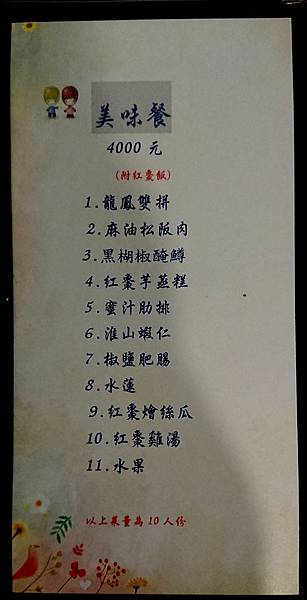 美味餐
4000 元
(附紅棗飯)
1.龍鳳雙拼
2.麻油松阪肉
3.黑楜椒醃鱒
4.紅棗芋蒸糕
5.蜜汁肋排
6.淮山蝦仁
7.椒鹽肥腸
8.水蓮
9.紅棗燴絲瓜
10.紅棗雞湯
11.水果
以上菜量為 10 人份